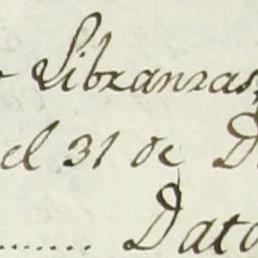 Libranzas
el 31 de D
........ Dato